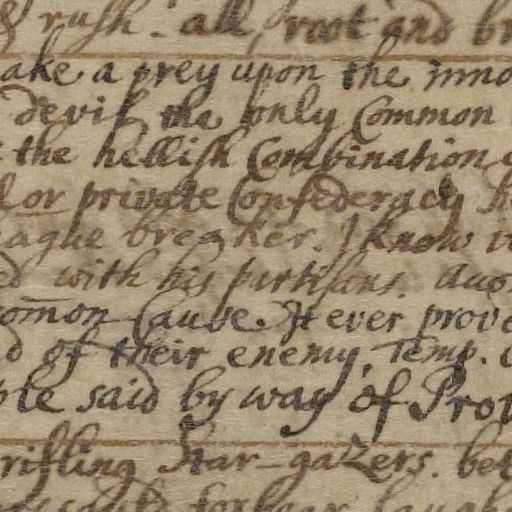 & rush. all, root and br
ake a prey upon the inno
devil the only Common
the hellish Combination
or private Confederacy
eague breaker. I know
with his partisans.
comon Cause. It ever prove
of their enemy, Temp.
ple said by way of Prov
rifling Star-gazers. bet
could forbear laugh